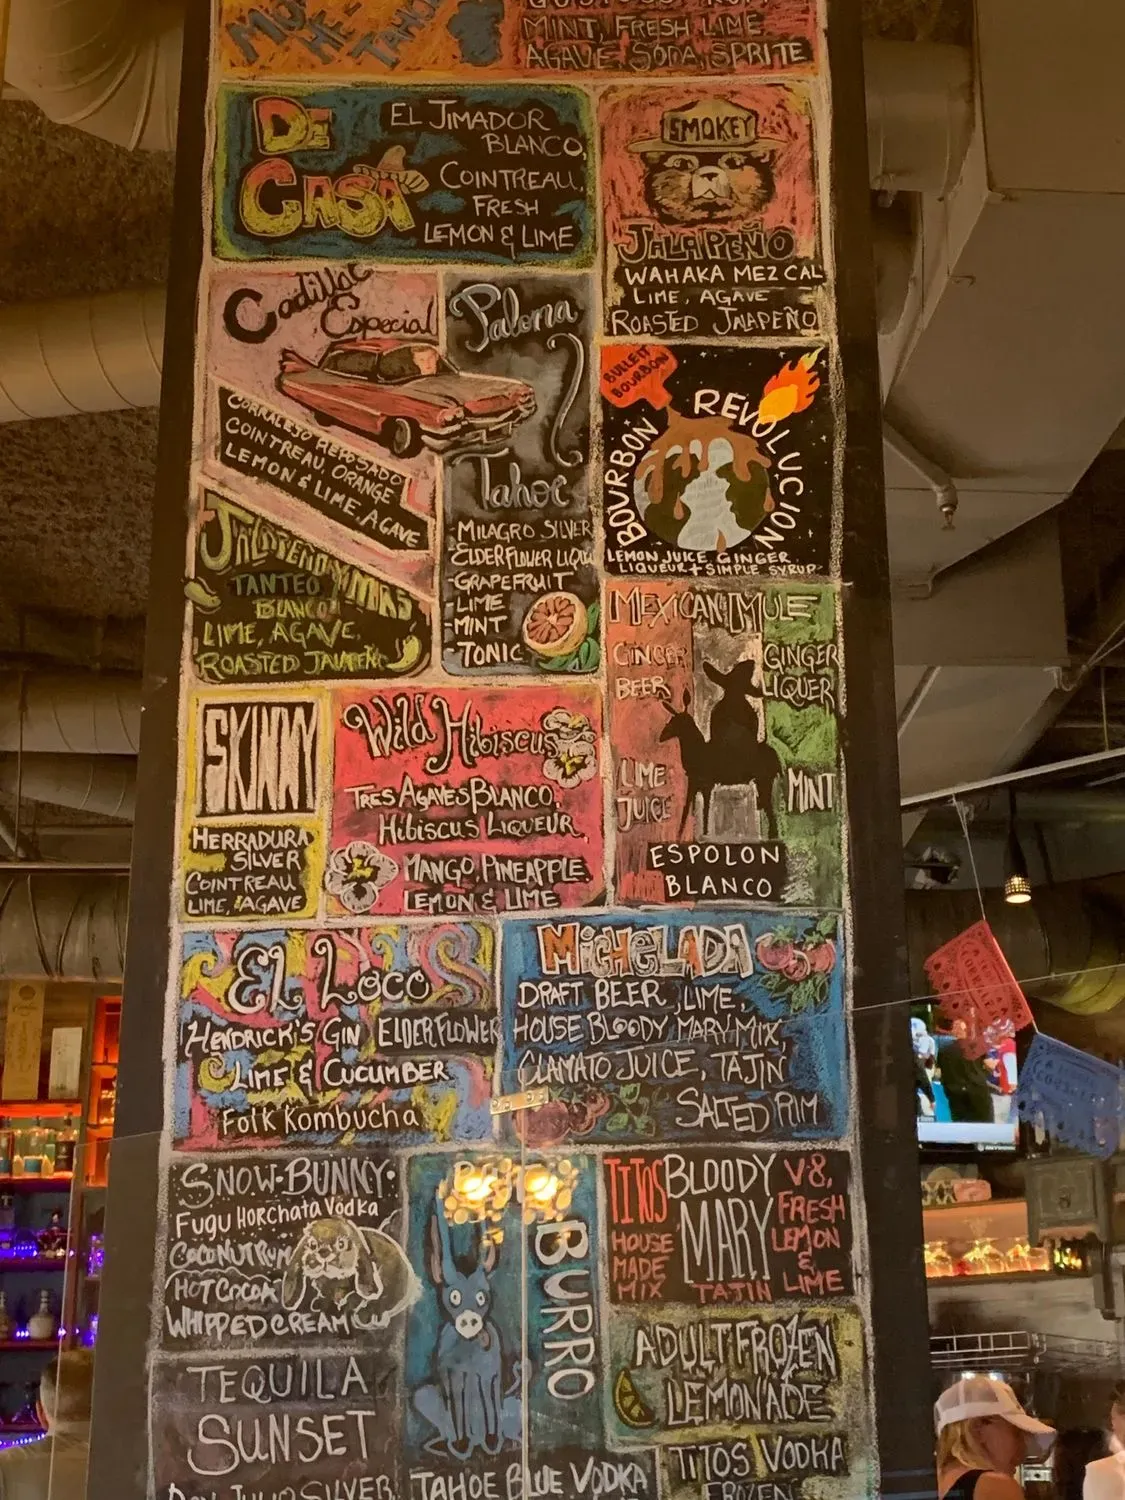 MINT, FRESH LIME
AGAVE, SODA, SPRITE
DE
CASA
EL JIMADOR
BLANCO,
COINTREAU,
FRESH
LEMON & LIME
SMOKEY
JALAPEÑO
WAHAKA MEZCAL
LIME, AGAVE
ROASTED JALAPEÑO
Cadillac
Especial
CORRALEJO REPOSADO
COINTREAU, ORANGE
LEMON & LIME, AGAVE
Paloma
Tahoe
- MILAGRO SILVER
- ELDERFLOWER LIQU
- GRAPEFRUIT
- LIME
- MINT
- TONIC
BULLEIT
BOURBON
BOURBON REVOLUCION
LEMON JUICE GINGER
LIQUEUR + SIMPLE SYRUP
JALAPENO
TANTEO
BLANCO
LIME, AGAVE,
ROASTED JALAPEÑO
MEXICAN MULE
GINGER
BEER
GINGER
LIQUER
LIME
JUICE
MINT
ESPOLON
BLANCO
SKINNY
HERRADURA
SILVER
COINTREAU
LIME, AGAVE
Wild Hibiscus
TRES AGAVES BLANCO,
HIBISCUS LIQUEUR,
MANGO, PINEAPPLE,
LEMON & LIME
EL LOCO
HENDRICK'S GIN ELDERFLOWER
LIME & CUCUMBER
FOLK KOMBUCHA
MICHELADA
DRAFT BEER, LIME,
HOUSE BLOODY MARY MIX,
CLAMATO JUICE, TAJIN
SALTED RIM
SNOW·BUNNY·
FUGU HORCHATA VODKA
COCONUT RUM
HOT COCOA
WHIPPED CREAM
BURRO
TAHOE BLUE VODKA
TITOS
HOUSE
MADE
MIX
BLOODY
MARY
TAJIN
V8,
FRESH
LEMON
&
LIME
TEQUILA
SUNSET
DON JULIO SILVER
ADULT FROZEN
LEMONADE
TITOS VODKA
FROZEN